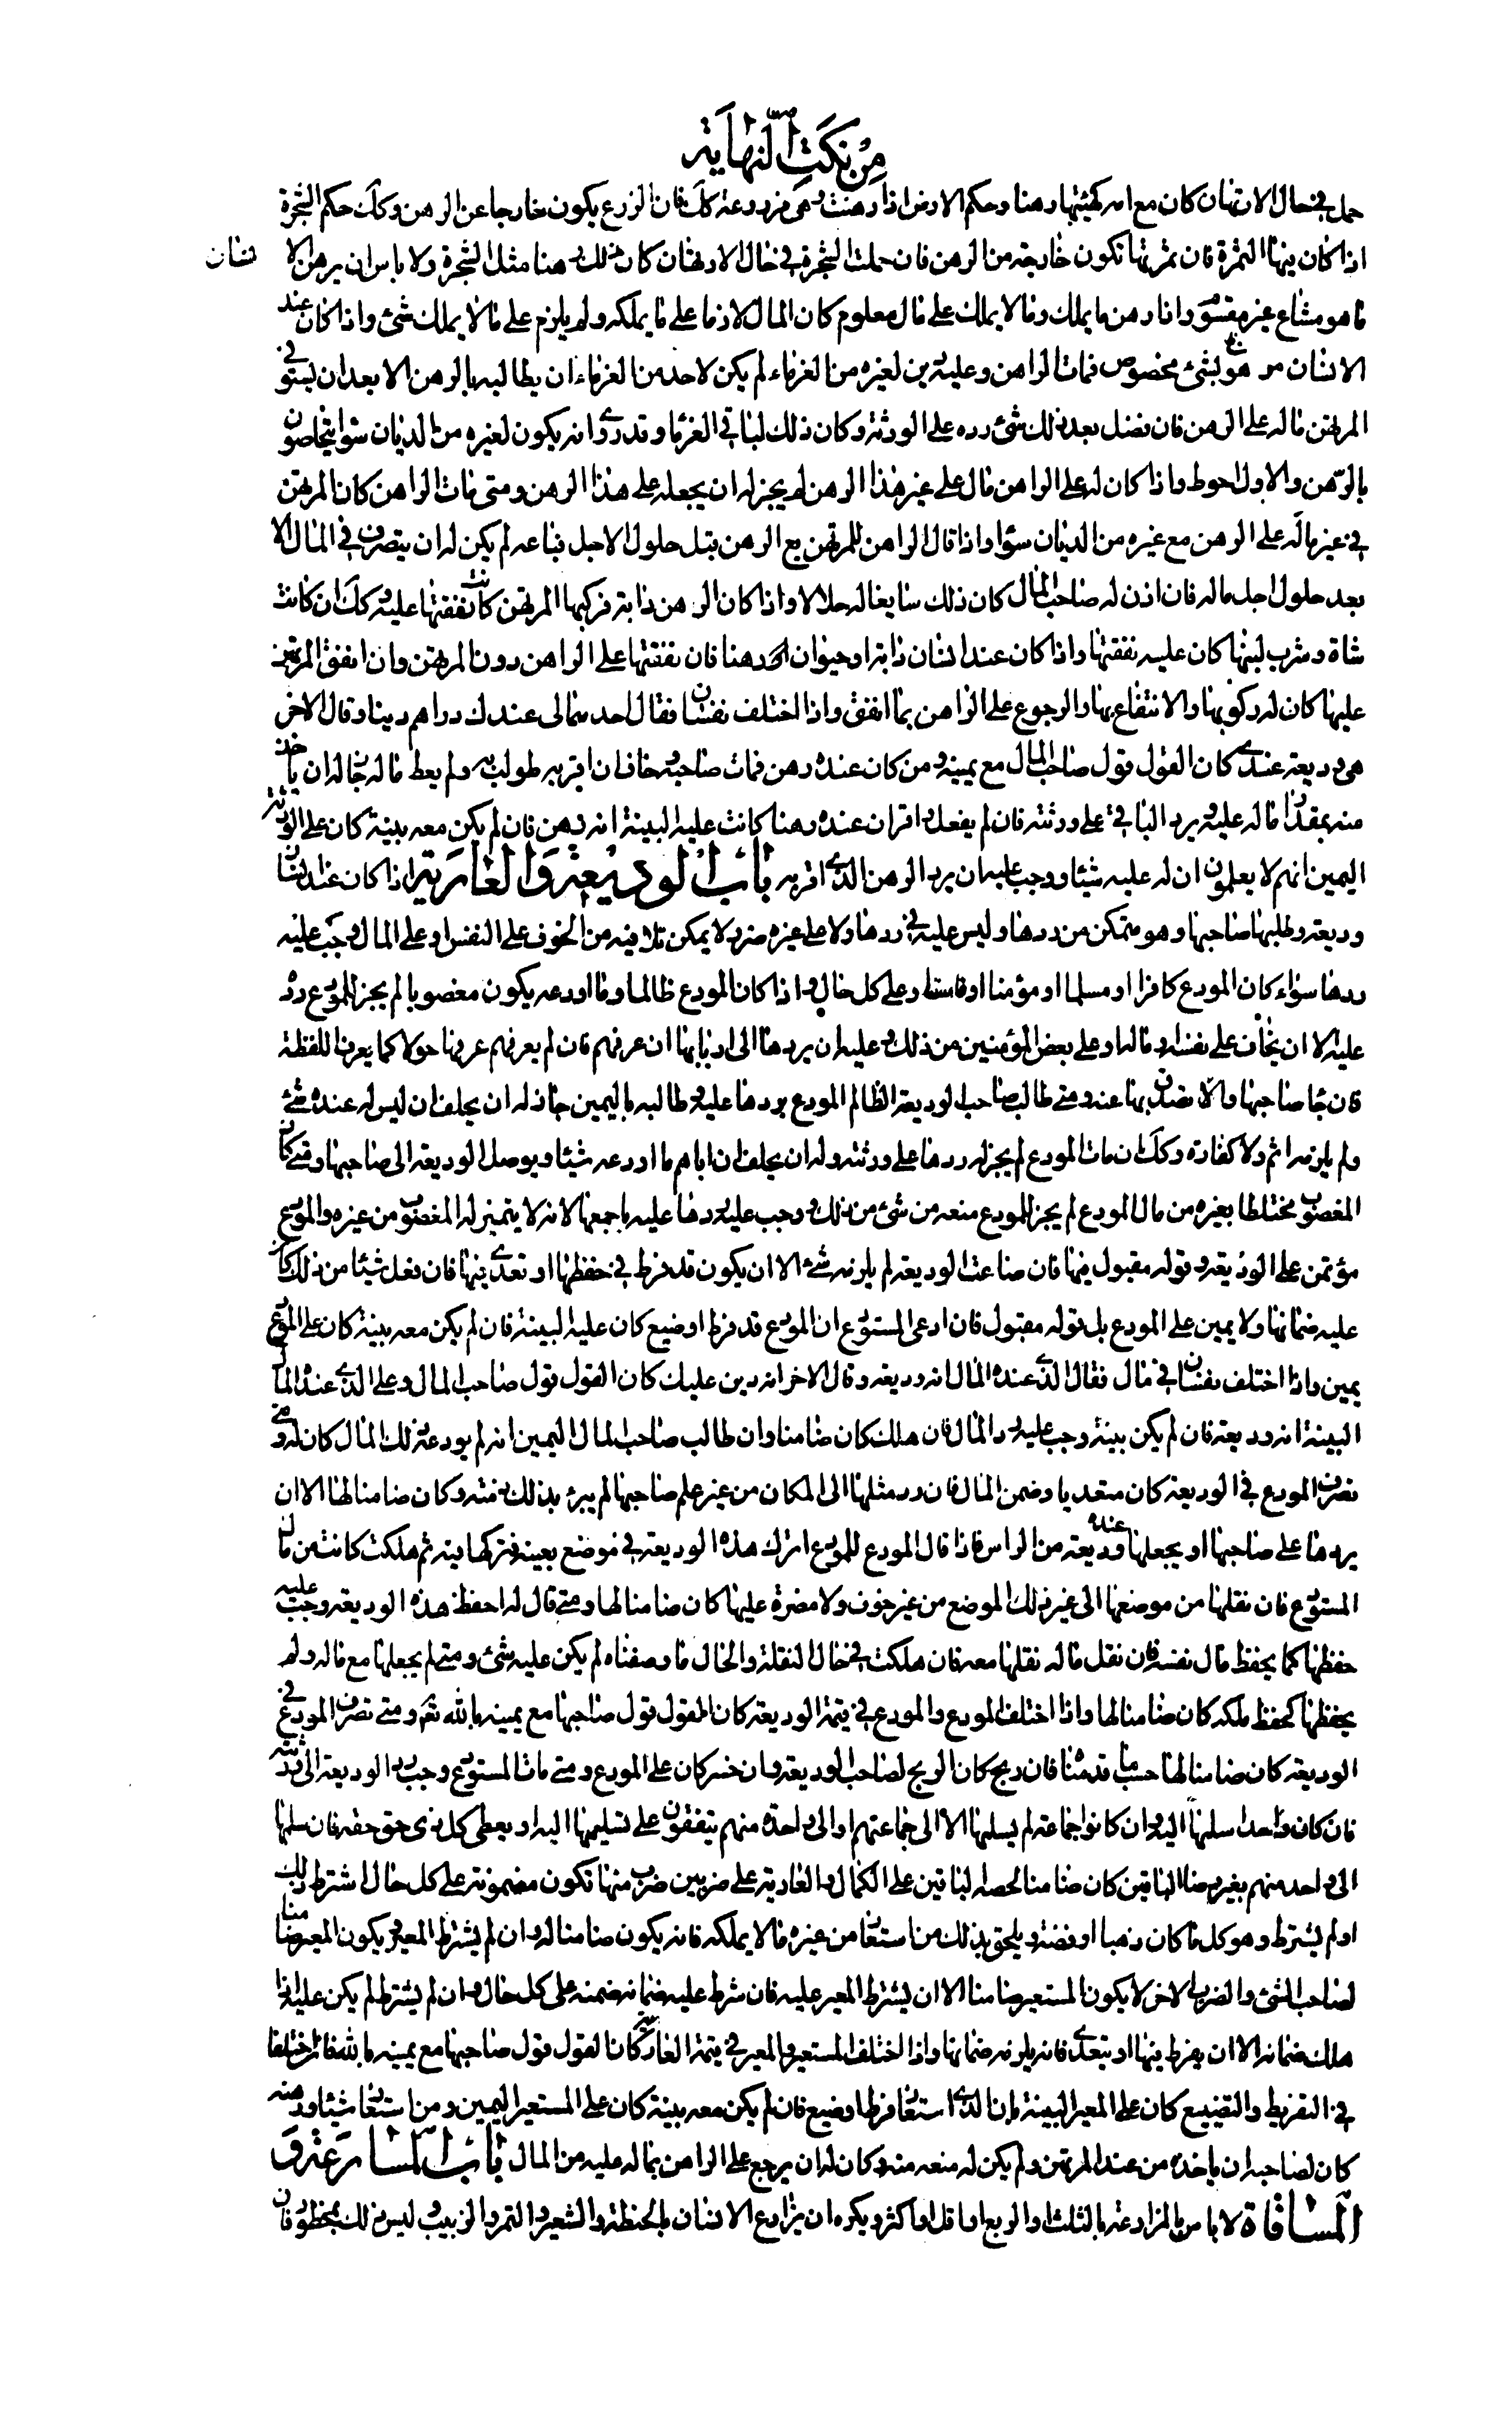 من نكت النهاية
حمل في حال الارتهان كان مع امه كهيئتها رهنا وحكم الارض اذا رهنت وهى مزروعة كك فان الزرع يكون خارجا عن الرهن وكك حكم الشجرة
اذا كان فيها الثمرة فان ثمرتها تكون خارجة من الرهن فان حملت الشجرة في حال الارتهان كان ذلك رهنا مثل الشجرة ولا باس ان يرهن الا نسان
ما هو مشاع غير مقسوم واذا رهن ما يملك وما لا يملك على مال معلوم كان المال لازما على ما يملكه ولم يلزم على ما لا يملك شئ واذا كان عند
الانسان رهن بشئ مخصوص فمات الراهن وعليه دين لغيره من الغرماء لم يكن لاحد من الغرماء ان يطالبه بالرهن الا بعد ان يستوفى
المرتهن ماله على الرهن فان فضل بعد ذلك شئ رده على الورثة وكان ذلك لباقى الغرما وقد روى انه يكون لغيره من الديان سوا يتحاصون
بالرهن والاول احوط واذا كان له على الراهن مال على غير هذا الرهن لم يجز له ان يجعله على هذا الرهن ومتى مات الراهن كان المرتهن
في غير ماله على الرهن مع غيره من الديان سوا واذا قال الراهن للمرتهن بع الرهن قبل حلول الاجل فباعه لم يكن له ان يتصرف في المال الا
بعد حلول اجل ماله فان اذن له صاحب المال كان ذلك سايغا له حلالا واذا كان الرهن دابة فركبها المرتهن كانت نفقتها عليه وكك ان كانت
شاة وشرب لبنها كان عليه نفقتها واذا كان عند انسان دابة او حيوان رهنا فان نفقتها على الراهن دون المرتهن وان انفق المرتهن
عليها كان له ركوبها والانتفاع بها والرجوع على الراهن بما انفق واذا اختلف نفسان فقال احدهما لى عندك دراهم دينا وقال الاخر
هى وديعة عندى كان القول قول صاحب المال مع يمينه ومن كان عنده رهن فمات صاحبه وخاف ان اقر به طولب به ولم يعط ماله جاز له ان ياخذ
منه بمقدار ماله عليه ويرد الباقى على ورثته فان لم يفعل واقر ان عنده رهنا كانت عليه البينة انه رهن فان لم يكن معه بينة كان على الورثة
اليمين انهم لا يعلمون ان له عليه شيئا ووجب عليه ان يرد الرهن الذى اقر به باب الوديعة والعارية اذا كان عند انسان
وديعة وطلبها صاحبها وهو متمكن من ردها وليس عليه في ردها ولا على غيره ضرر لا يمكن تلافيه من الخوف على النفس او على المال وجب عليه
ردها سواء كان المودع كافرا او مسلما او مؤمنا او فاسقا وعلى كل حال واذا كان المودع ظالما وما اودعه يكون مغصوبا لم يجز للمودع رده
عليه الا ان يخاف على نفسه او ماله او على بعض المؤمنين من ذلك وعليه ان يردها الى اربابها ان عرفهم فان لم يعرفهم عرفها حولا كما يعرف اللقطة
فان جا صاحبها والا تصدق بها عنه ومتى طالب صاحب الوديعة الظالم المودع بردها عليه وطالبه باليمين جاز له ان يحلف ان ليس له عنده شئ
ولم يلزمه اثم ولا كفارة وكك ان مات المودع لم يجز له ردها على ورثته وله ان يحلف ان اباهم ما اودعه شيئا ويوصل الوديعة الى صاحبها ومتى كان
المغصوب مختلطا بغيره من مال المودع لم يجز للمودع منعه من شئ من ذلك ووجب عليه ردها عليه باجمعها لانه لا يتميز له المغصوب من غيره والمودع
مؤتمن على الوديعة وقوله مقبول فيها فان ضاعت الوديعة لم يلزمه شئ الا ان يكون قد فرط في حفظها او تعدى فيها فان فعل شيئا من ذلك كان
عليه ضمانها ولا يمين على المودع بل قوله مقبول فان ادعى المستودع ان المودع قد فرط او ضيع كان عليه البينة فان لم يكن معه بينة كان على المودع
يمين واذا اختلف نفسان في مال فقال الذى عنده المال انه وديعة وقال الاخر انه دين عليك كان القول قول صاحب المال وعلى الذى عنده المال
البينة انه وديعة فان لم يكن بينة وجب عليه رد المال فان هلك كان ضامنا وان طالب صاحب المال اليمين انه لم يودعه ذلك المال كان له ومتى
تصرف المودع في الوديعة كان متعديا وضمن المال فان رد مثلها الى المكان من غير علم صاحبها لم يبرء بذلك ذمته وكان ضامنا لها الا ان
يردها على صاحبها او يجعلها عنده وديعة من الراس فاذا قال المودع للمودع اترك هذه الوديعة في موضع بعينه فتركها فيه ثم هلكت كانت من مال
المستودع فان نقلها من موضعها الى غير ذلك الموضع من غير خوف ولا مضرة عليها كان ضامنا لها ومتى قال له احفظ هذه الوديعة وجب عليه
حفظها كما يحفظ مال نفسه فان نقل ماله نقلها معه فان هلكت في حال النقلة والحال ما وصفناه لم يكن عليه شئ ومتى لم يجعلها مع ماله ولم
يحفظها كحفظ ملكه كان ضامنا لها واذا اختلف المودع والمودع في قيمة الوديعة كان القول قول صاحبها مع يمينه بالله تعم ومتى تصرف المودع في
الوديعة كان ضامنا لها حسب ما قدمناه فان ربح كان الربح لصاحب الوديعة وان خسر كان على المودع ومتى مات المستودع وجب رد الوديعة الى ورثته
فان كان واحدا سلمها اليه وان كانوا جماعة لم يسلمها الا الى جماعتهم او الى واحد منهم يتفقون على تسليمها اليه او يعطى كل ذى حق حقه فان سلمها
الى واحد منهم بغير رضا الباقين كان ضامنا لحصة الباقين على الكمال والعارية على ضربين ضرب منها تكون مضمونة على كل حال شرط ذلك
او لم يشترط وهو كل ما كان ذهبا او فضة ويلحق بذلك من استعار من غيره ما لا يملكه فانه يكون ضامنا له وان لم يشترط المعير ويكون المعير ضامنا
لصاحب الشئ والضرب الاخر لا يكون المستعير ضامنا الا ان يشترط المعير عليه فان شرط عليه ضمانه ضمنه على كل حال وان لم يشترط لم يكن عليه اذا
هلك ضمانه الا ان يفرط فيها او يتعدى فانه يلزمه ضمانها واذا اختلف المستعير والمعير في قيمة العارية كان القول قول صاحبها مع يمينه بالله فان اختلفا
في التفريط والتضييع كان على المعير البينة بان الذى استعار فرط او ضيع فان لم يكن معه بينة كان على المستعير اليمين ومن استعار شيئا ورهنه
كان لصاحبه ان ياخذه من عند المرتهن ولم يكن له منعه منه وكان له ان يرجع على الراهن بما له عليه من المال باب المزارعة و
المساقاة لا باس بالمزارعة بالثلث او الربع او اقل او اكثر ويكره ان يزارع الانسان بالحنطة والشعير والتمر والزبيب وليس ذلك بمحظور فان